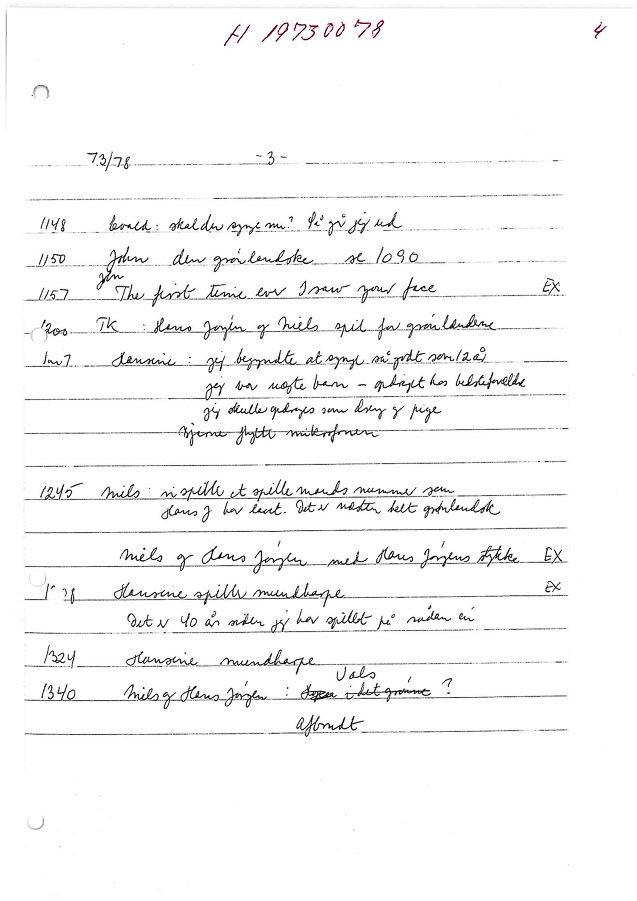 H 19730078 4
73/78 -3-
1148 Evald: skal der synge nu? Så går jeg ud
1150 John den grønlandske se 1090
1157 The first time ever I saw your face EX
1200 TK : Hans Jørgen og Niels spil for grønlænderne
Hansine: jeg begyndte at synge så godt som 12 år
jeg var uægte barn – opdraget hos bedsteforældre
jeg skulle opdrages som dreng og pige
Bjarne flytte mikrofonen
1245 Niels: vi spille et spillemands nummer som
Hans J har lært. Det er næsten helt grønlandsk
Niels og Hans Jørgen med Hans Jørgens stykke EX
Hansine spille mundharpe EX
Det er 40 år siden jeg har spillet på sådan én
1324 Hansine mundharpe
Vals
1340 Niels og Hans Jørgen : i det grønne ?
Afbrudt